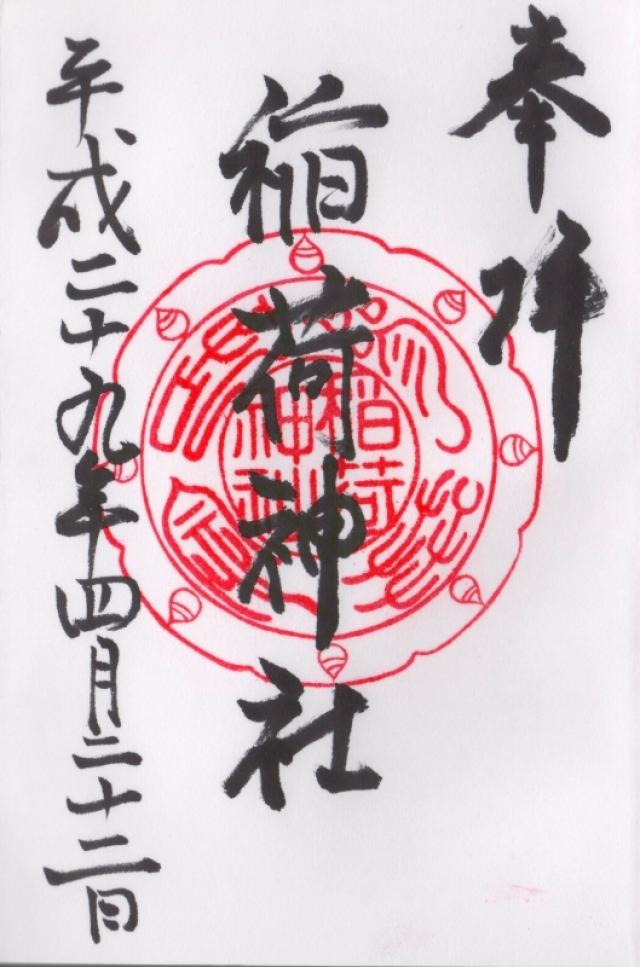 奉拝
稲荷神社
稲荷
神社
平成二十九年四月二十二日